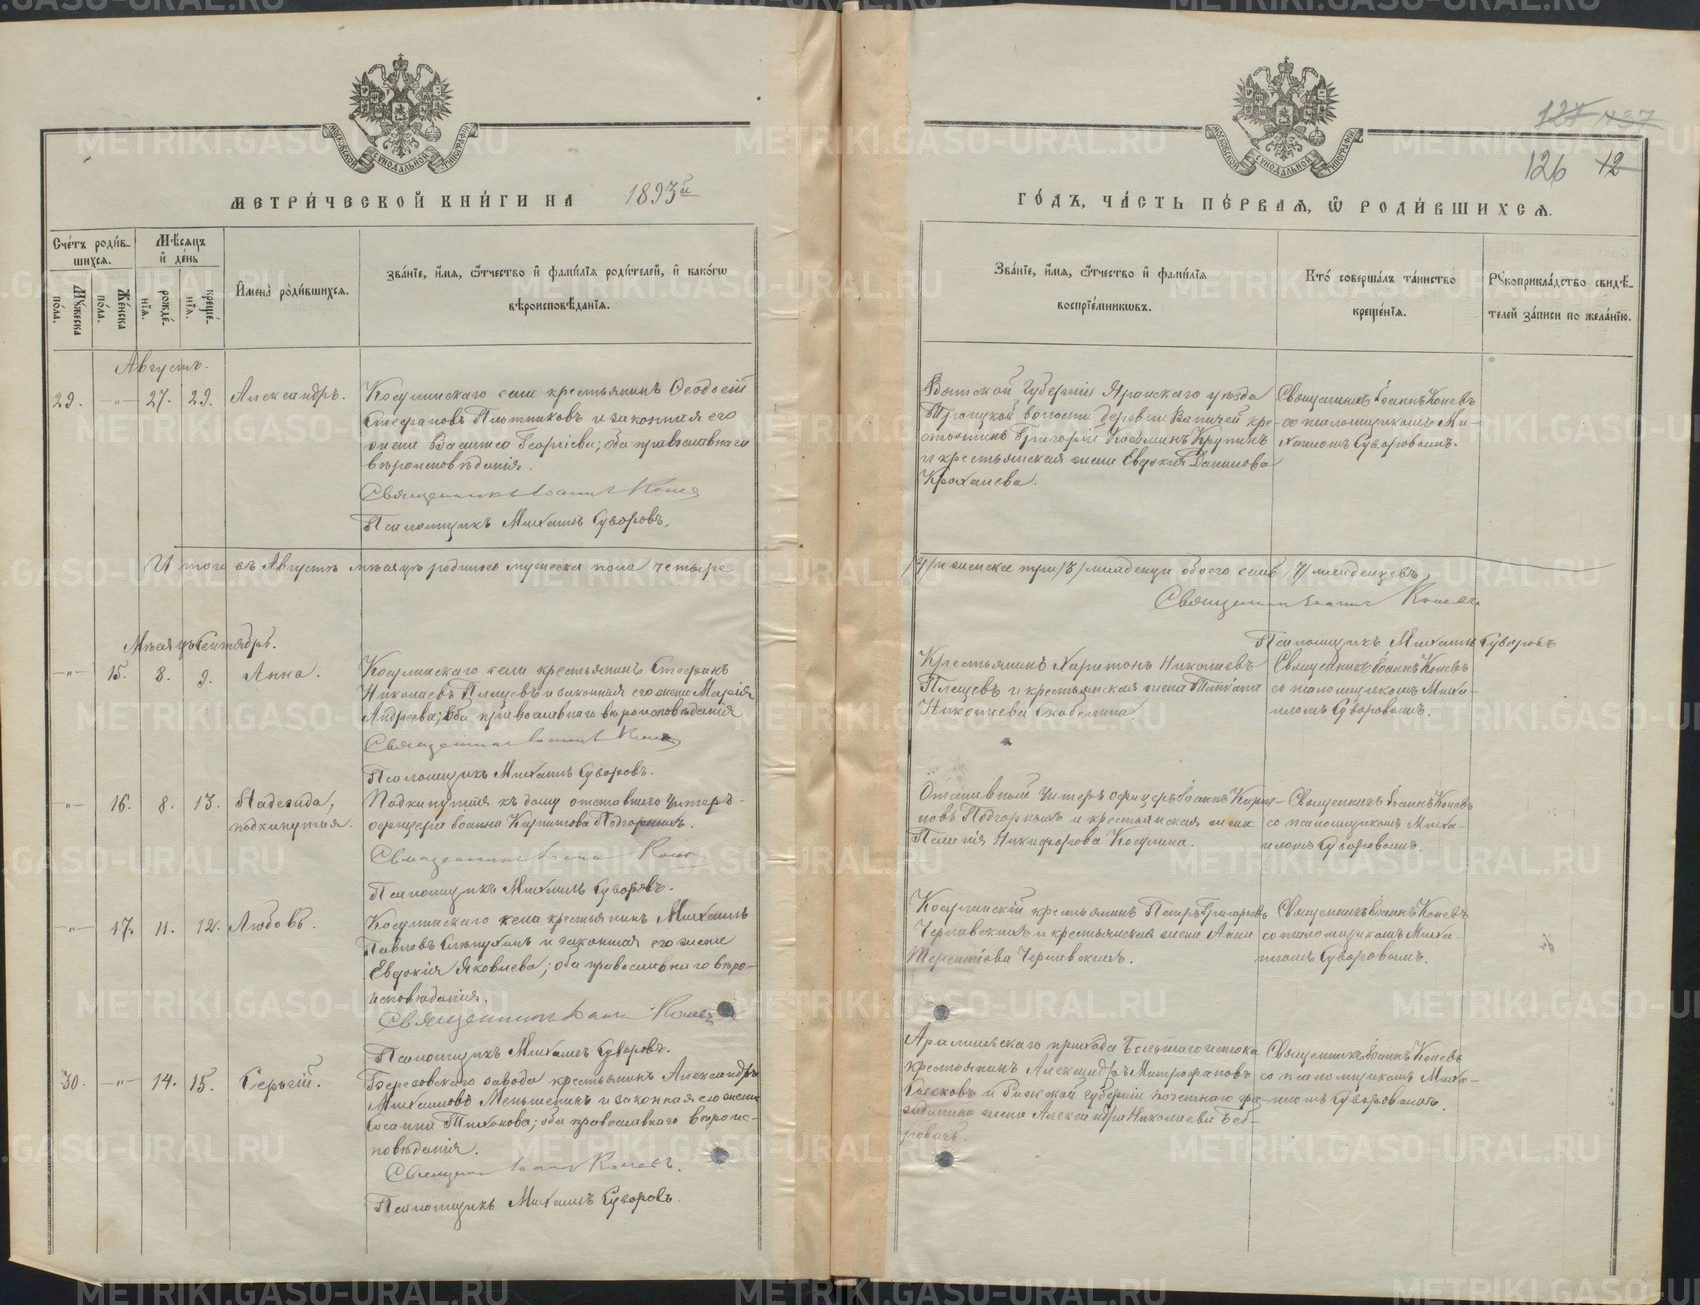 127 1137
126 12
МОСКОВСКОЙ СѴНОДАЛЬНОЙ ТИПОГРАФІИ
МОСКОВСКОЙ СѴНОДАЛЬНОЙ ТИПОГРАФІИ
МЕТРИ́ЧЕСКОЙ КНИ́ГИ НА 1893й
ГО́ДЪ, ЧА́СТЬ ПЕ́РВАѦ, Ѽ РОДИ́ВШИХСѦ.
Сче́тъ роди́в-
шихсѧ.
Мꙋ́жеска
по́ла.
Же́нска
по́ла.
Мѣ́сѧцъ
и҆ де́нь
рожде́-
нїѧ.
креще́-
нїѧ.
И҆мена̀ роди́вшихсѧ.
Зва́нїе, и҆́мѧ, ѻ҆́тчество и҆ фами́лїѧ роди́телей, и҆ како́гѡ
вѣроисповѣ́данїѧ.
Зва́нїе, и҆́мѧ, ѻ҆́тчество и҆ фами́лїѧ
воспрїе́мникѡвъ.
Кто̀ соверша́лъ та́инство
креще́нїѧ.
Рꙋкоприкла́дство свидѣ́-
телей за́писи по жела́нїю.
Августъ.
29. -"- 27. 29. Александръ.
Косулинскаго села крестьянинъ Ѳеодосій
Стефановъ Плотниковъ и законная его
жена Васса Георгіева; оба православнаго
вѣроисповѣданія.
Священникъ Іоаннъ Коневъ
Псаломщикъ Михаилъ Суворовъ.
Вятской Губерніи Яранскаго уѣзда
Троицкой волости деревни кре-
стьянинъ Григорій Косьминъ Крупинъ
и крестьянская жена Евдокія Данилова
Крохалева.
Священникъ Іоаннъ Коневъ
со псаломщикомъ Ми-
хаиломъ Суворовымъ.
Итого въ Августѣ мѣсяцѣ родилось мужеска пола четыре
/4/ и женска три /3/ младенца обоего седмь /7/ младенцевъ,
Священникъ Іоаннъ Коневъ
Псаломщикъ Михаилъ Суворовъ
Мѣсяцъ Сентябрь.
-"- 15. 8. 9. Анна.
Косулинскаго села крестьянинъ Стефанъ
Николаевъ Плещевъ и законная его жена Марія
Андреева; оба православнаго вѣроисповѣданія
Священникъ Іоаннъ Коневъ
Псаломщикъ Михаилъ Суворовъ.
Крестьянинъ Харитонъ Николаевъ
Плещевъ и крестьянская жена Татіана
Николаева Скобелина.
Священникъ Іоаннъ Коневъ
со псаломщикомъ Миха-
иломъ Суворовымъ.
-"- 16. 8. 13. Надежда,
подкинутая.
Подкинутая къ дому отставнаго Унтеръ-
офицера Іоанна Кириллова Подгорныхъ.
Священникъ Іоаннъ Коневъ
Псаломщикъ Михаилъ Суворовъ.
Отставной Унтеръ офицеръ Іоаннъ Кирил-
ловъ Подгорныхъ и крестьянская жена
Пелагія Никифорова Косулина.
Священникъ Іоаннъ Коневъ
со псаломщикомъ Миха-
иломъ Суворовымъ.
-"- 17. 11. 12. Любовь.
Косулинскаго села крестьянинъ Михаилъ
Павловъ и законная его жена
Евдокія Яковлева; оба православнаго вѣро-
исповѣданія.
Священникъ Іоаннъ Коневъ
Псаломщикъ Михаилъ Суворовъ.
Косулинскій крестьянинъ Петръ Григорьевъ
Чернавскихъ и крестьянская жена Анна
Терентіева Чернавскихъ.
Священникъ Іоаннъ Коневъ
со псаломщикомъ Миха-
иломъ Суворовымъ.
30. -"- 14. 15. Сергій.
Березовскаго завода крестьянинъ Александръ
Михаиловъ Меньшенинъ и законная его жена
Сосанна Тихонова; оба православнаго вѣроис-
повѣданія.
Священникъ Іоаннъ Коневъ.
Псаломщикъ Михаилъ Суворовъ.
Арамильскаго прихода Большаго истока
крестьянинъ Александръ Митрофановъ
и Рижской губерніи почетнаго гра-
жданина жена Александра Николаева Боб-
ровичъ.
Священникъ Іоаннъ Коневъ
со псаломщикомъ Миха-
иломъ Суворовымъ.
METRIKI.GASO-URAL.RU